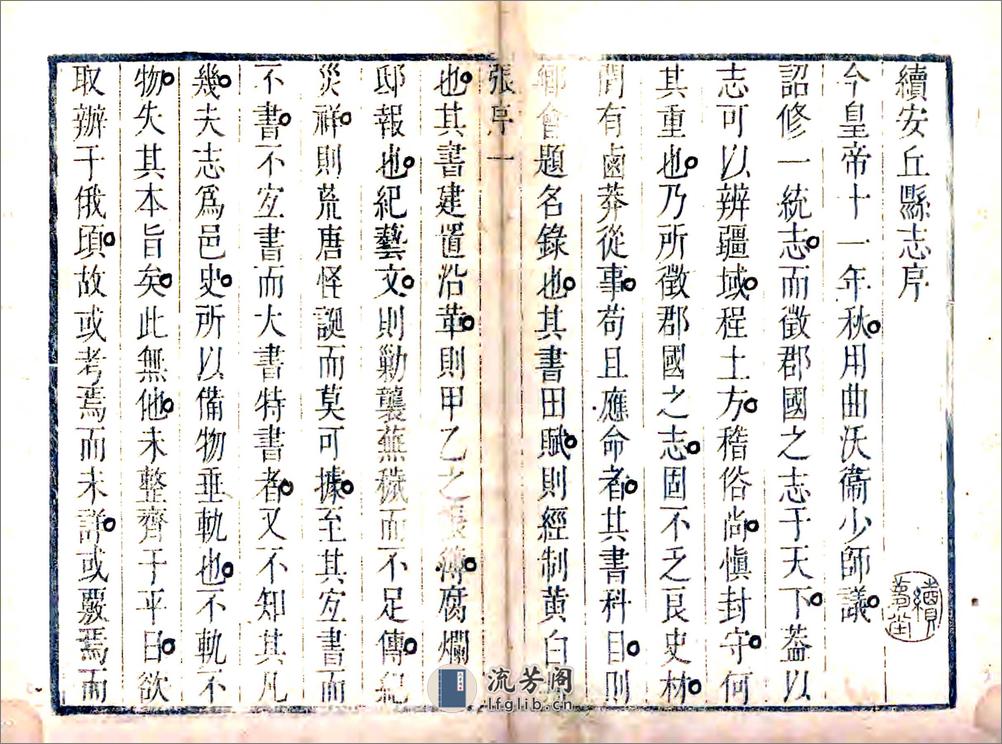 續安丘縣志序
今皇帝十一年秋用曲沃衞少師議
詔修一統志而徵郡國之志于天下葢以
志可以辨疆域程土方稽俗尚愼封守何
其重也乃所徵郡國之志固不乏良史材
間有鹵莽從事苟且應命者其書科目則
鄉會題名錄也其書田賦則經制黃白
張序一
也其書建置沿革則甲乙之張簿腐爛
邸報也紀藝文則勦襲蕪穢而不足傳紀
災祥則荒唐怪誕而莫可據至其宐書而
不書不宐書而大書特書者又不知其凡
幾夫志爲邑史所以備物垂軌也不軌不
物失其本旨矣此無他未整齊于平日欲
取辦于俄頃故或考焉而未詳或覈焉而
續
流芳阁
lfglib.cn